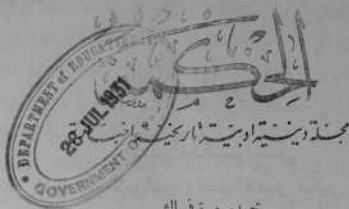 الحكمة
DEPARTMENT of EDUCATION
28 JUL 1931
GOVERNMENT OF
مجلة دينية ادبية تاريخية اخبارية